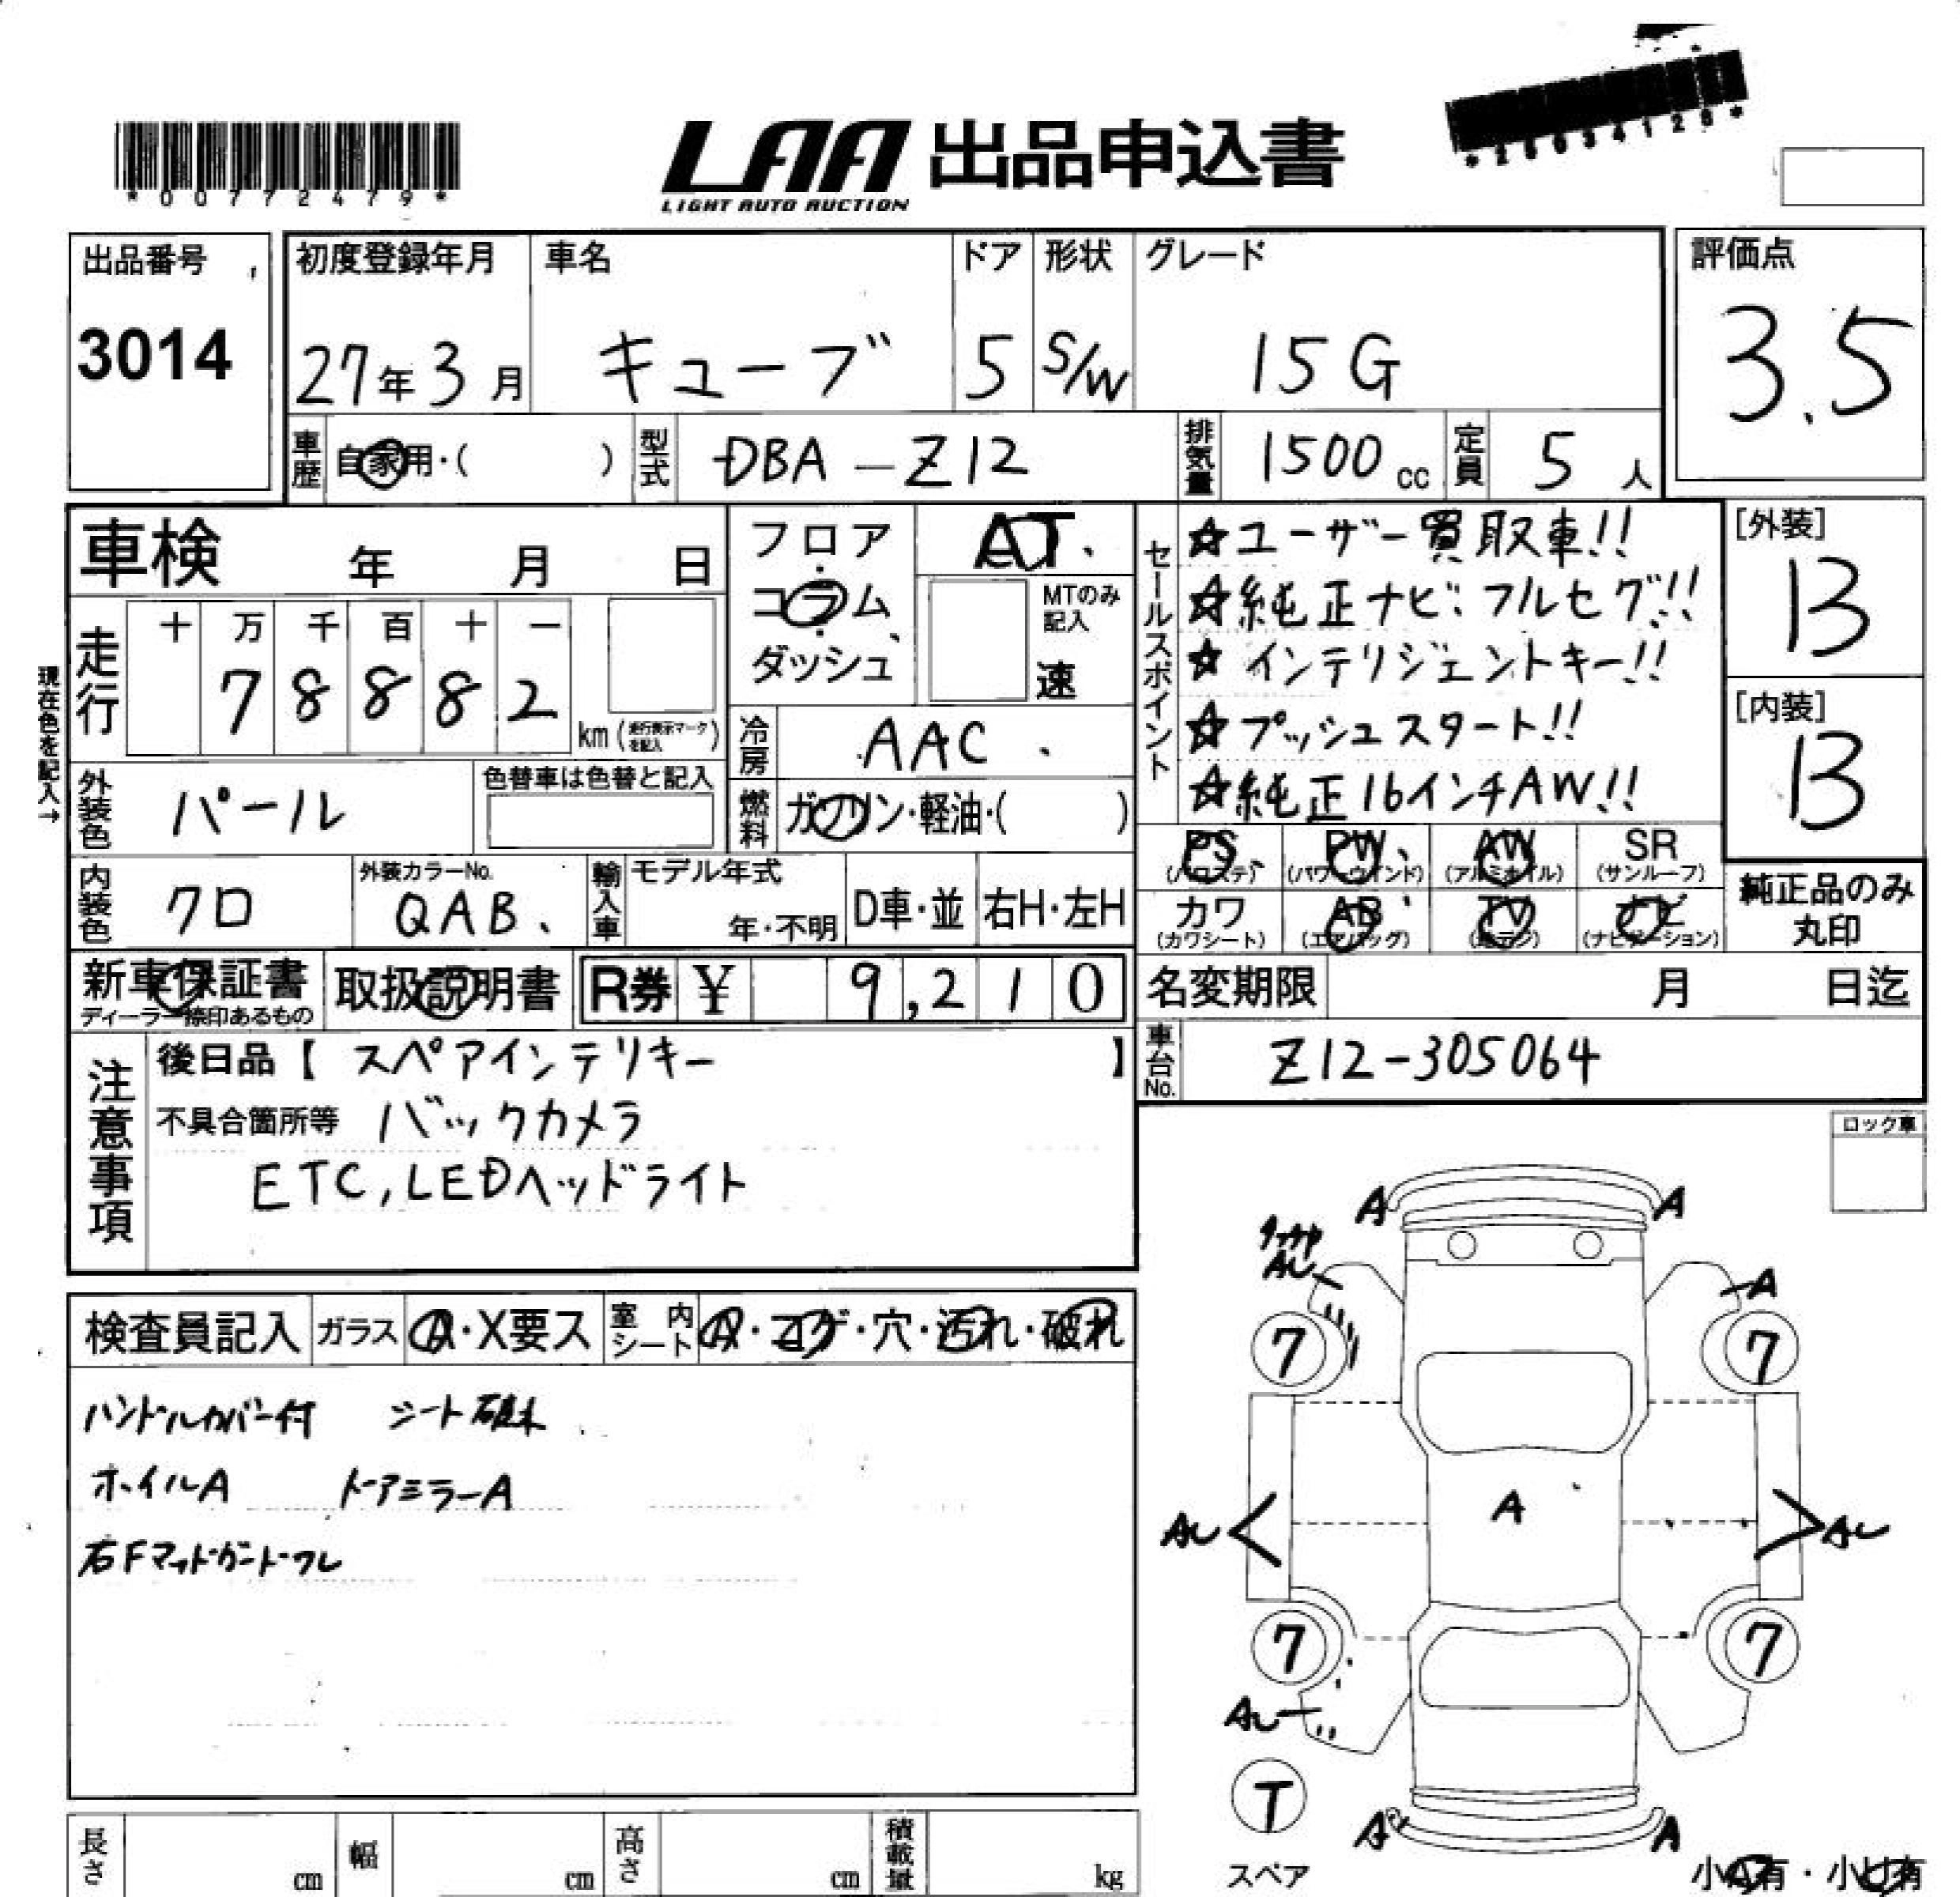 *00772479*
LAA 出品申込書
LIGHT AUTO AUCTION
*28034128*
出品番号
3014
初度登録年月
27年3月
車名
キューブ
ドア
5
形状
S/W
グレード
15G
評価点
3.5
車歴 自家用・( )
型式 DBA-Z12
排気量 1500cc
定員 5人
車検 年 月 日
フロア・コラム・ダッシュ
AT
MTのみ記入
速
セールスポイント
☆ユーザー買取車!!
☆純正ナビ、フルセグ!!
☆インテリジェントキー!!
☆プッシュスタート!!
☆純正16インチAW!!
[外装]
13
[内装]
13
現在色を記入→
走行
十万千百十一
78882
km(走行表示マークを記入)
冷房 AAC
外装色 パール
色替車は色替と記入
燃料 ガソリン・軽油・( )
PS (パワステ)
PW (パワーウインド)
AW (アルミホイル)
SR (サンルーフ)
カワ (カワシート)
AB (エアバッグ)
TV (地デジ)
ナビ (ナビゲーション)
純正品のみ丸印
内装色 クロ
外装カラーNo.
QAB
輸入車 モデル年式
年・不明
D車・並
右H・左H
新車保証書
ディーラー捺印あるもの
取扱説明書
R券 ¥ 9,210
名変期限 月 日迄
車台No. Z12-305064
注意事項
後日品【 スペアインテリキー 】
不具合箇所等 バックカメラ
ETC,LEDヘッドライト
ロック車
検査員記入
ガラス A・X要ス
室内シート A・コゲ・穴・汚れ・破れ
ハンドルカバー付 シート破れ
ホイルA ドアミラーA
右Fマッドガードワレ
A A
AU
A
7 7
AU A AU
7 7
AU
T
スペア
A A
小A有・小U有
長さ cm
幅 cm
高さ cm
積載量 kg